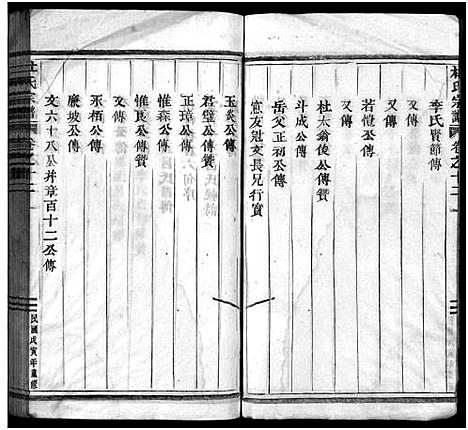 杜氏宗譜
卷之十二
李氏賢節傳
又傳
又傳
若愷公傳
杜太翁俊公傳贊
斗成公傳
岳父正初公傳
宜友冠文長兄行實
玉炎公傳
君璧公傳贊
正璋公傳贊
惟森公傳
惟良公傳贊
又傳
丞栢公傳
廉坡公傳
文六十八公并章百十二公傳
杜氏宗譜
卷之十二
民國戊寅年重修